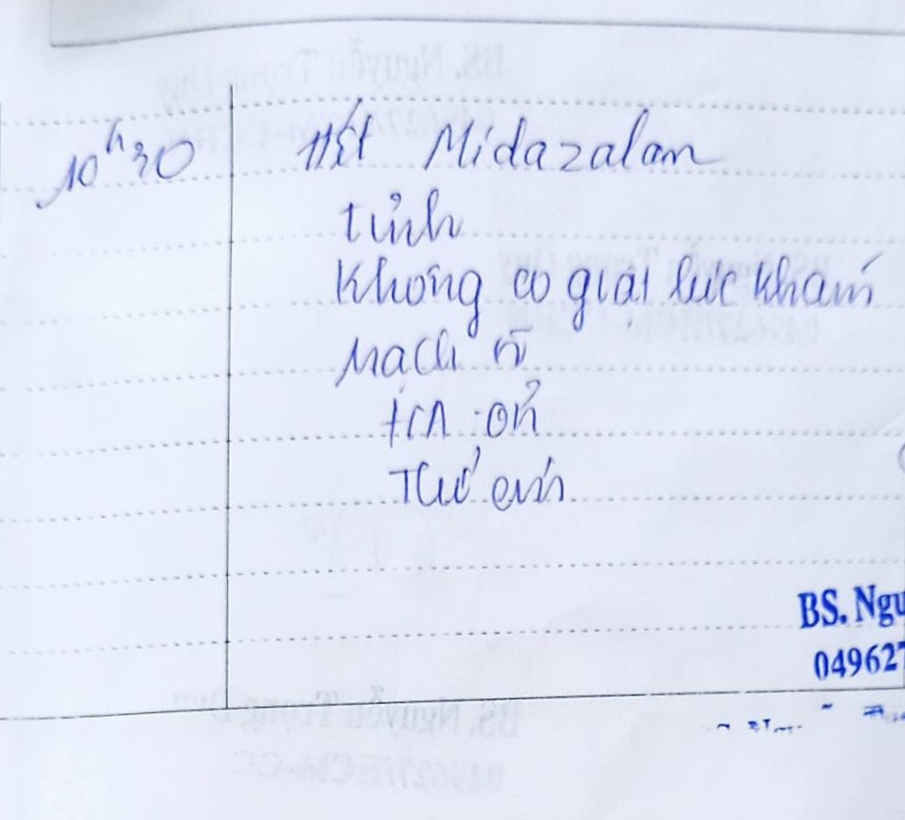 10h30 Hết Midazolam
tỉnh
Không co giật lúc khám
Mạch rõ
HA: ổn
Thở êm
BS. Ngu
049627